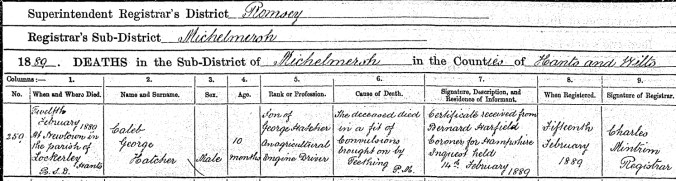 Superintendent Registrar's District Romsey
Registrar's Sub-District Michelmersh
1889. DEATHS in the Sub-District of Michelmersh in the Counties of Hants and Wilts
Columns:— 1. 2. 3. 4. 5. 6. 7. 8. 9.
No. When and Where Died. Name and Surname. Sex. Age. Rank or Profession. Cause of Death. Signature, Description, and Residence of Informant. When Registered. Signature of Registrar.
250
Twelfth
February 1889
At Newtown in
the parish of
Lockerley
Hants
R.S.D.
Caleb
George
Hatcher
Male
10
months
Son of
George Hatcher
An agricultural
Engine Driver
The deceased died
in a fit of
Convulsions
brought on by
Teething
P.M.
Certificate received from
Bernard Harfield
Coroner for Hampshire
Inquest held
14th February 1889
Fifteenth
February
1889
Charles
Mintrim
Registrar